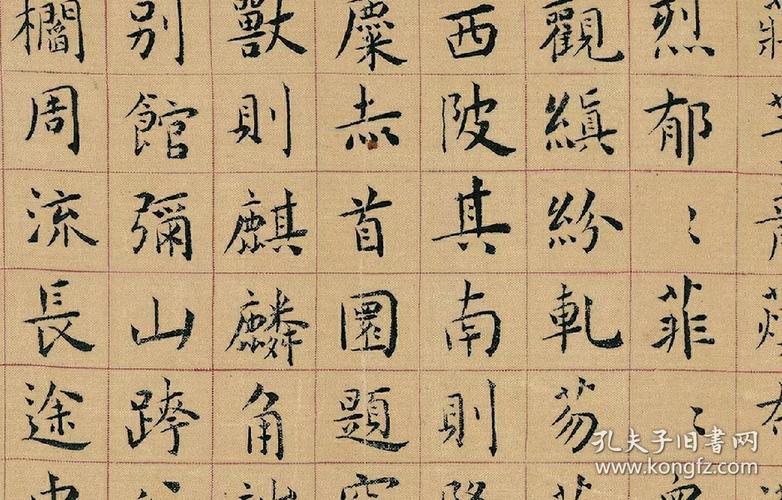 烈郁〻菲〻
觀縝紛軋芴
西陂其南則
麋赤首圜題
獸則麒麟角
别館彌山跨
欄周流長途
孔夫子旧书网
www.kongfz.com